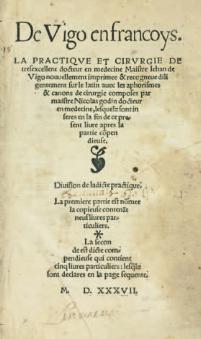 De Vigo en francoys.
LA PRACTIQVE ET CIRVRGIE DE
tresexcellent docteur en medecine Maistre Iehan de
Vigo nouuellement imprimee & recogneue dili
gentement sur le latin auec les aphorismes
& canons de cirurgie composes par
maistre Nicolas godin docteur
en medecine, lesquelz sont in
seres en la fin de ce pre
sent liure apres la
partie cōpen
dieuse.
Diuision de ladicte practique.
La premiere partie est nōmee
la copieuse contenāt
neuf liures par-
ticuliers.
La secon
de est dicte com-
pendieuse qui contient
cinq liures particuliers: lesq̄lz
sont declares en la page sequente.
M. D. XXXVII.